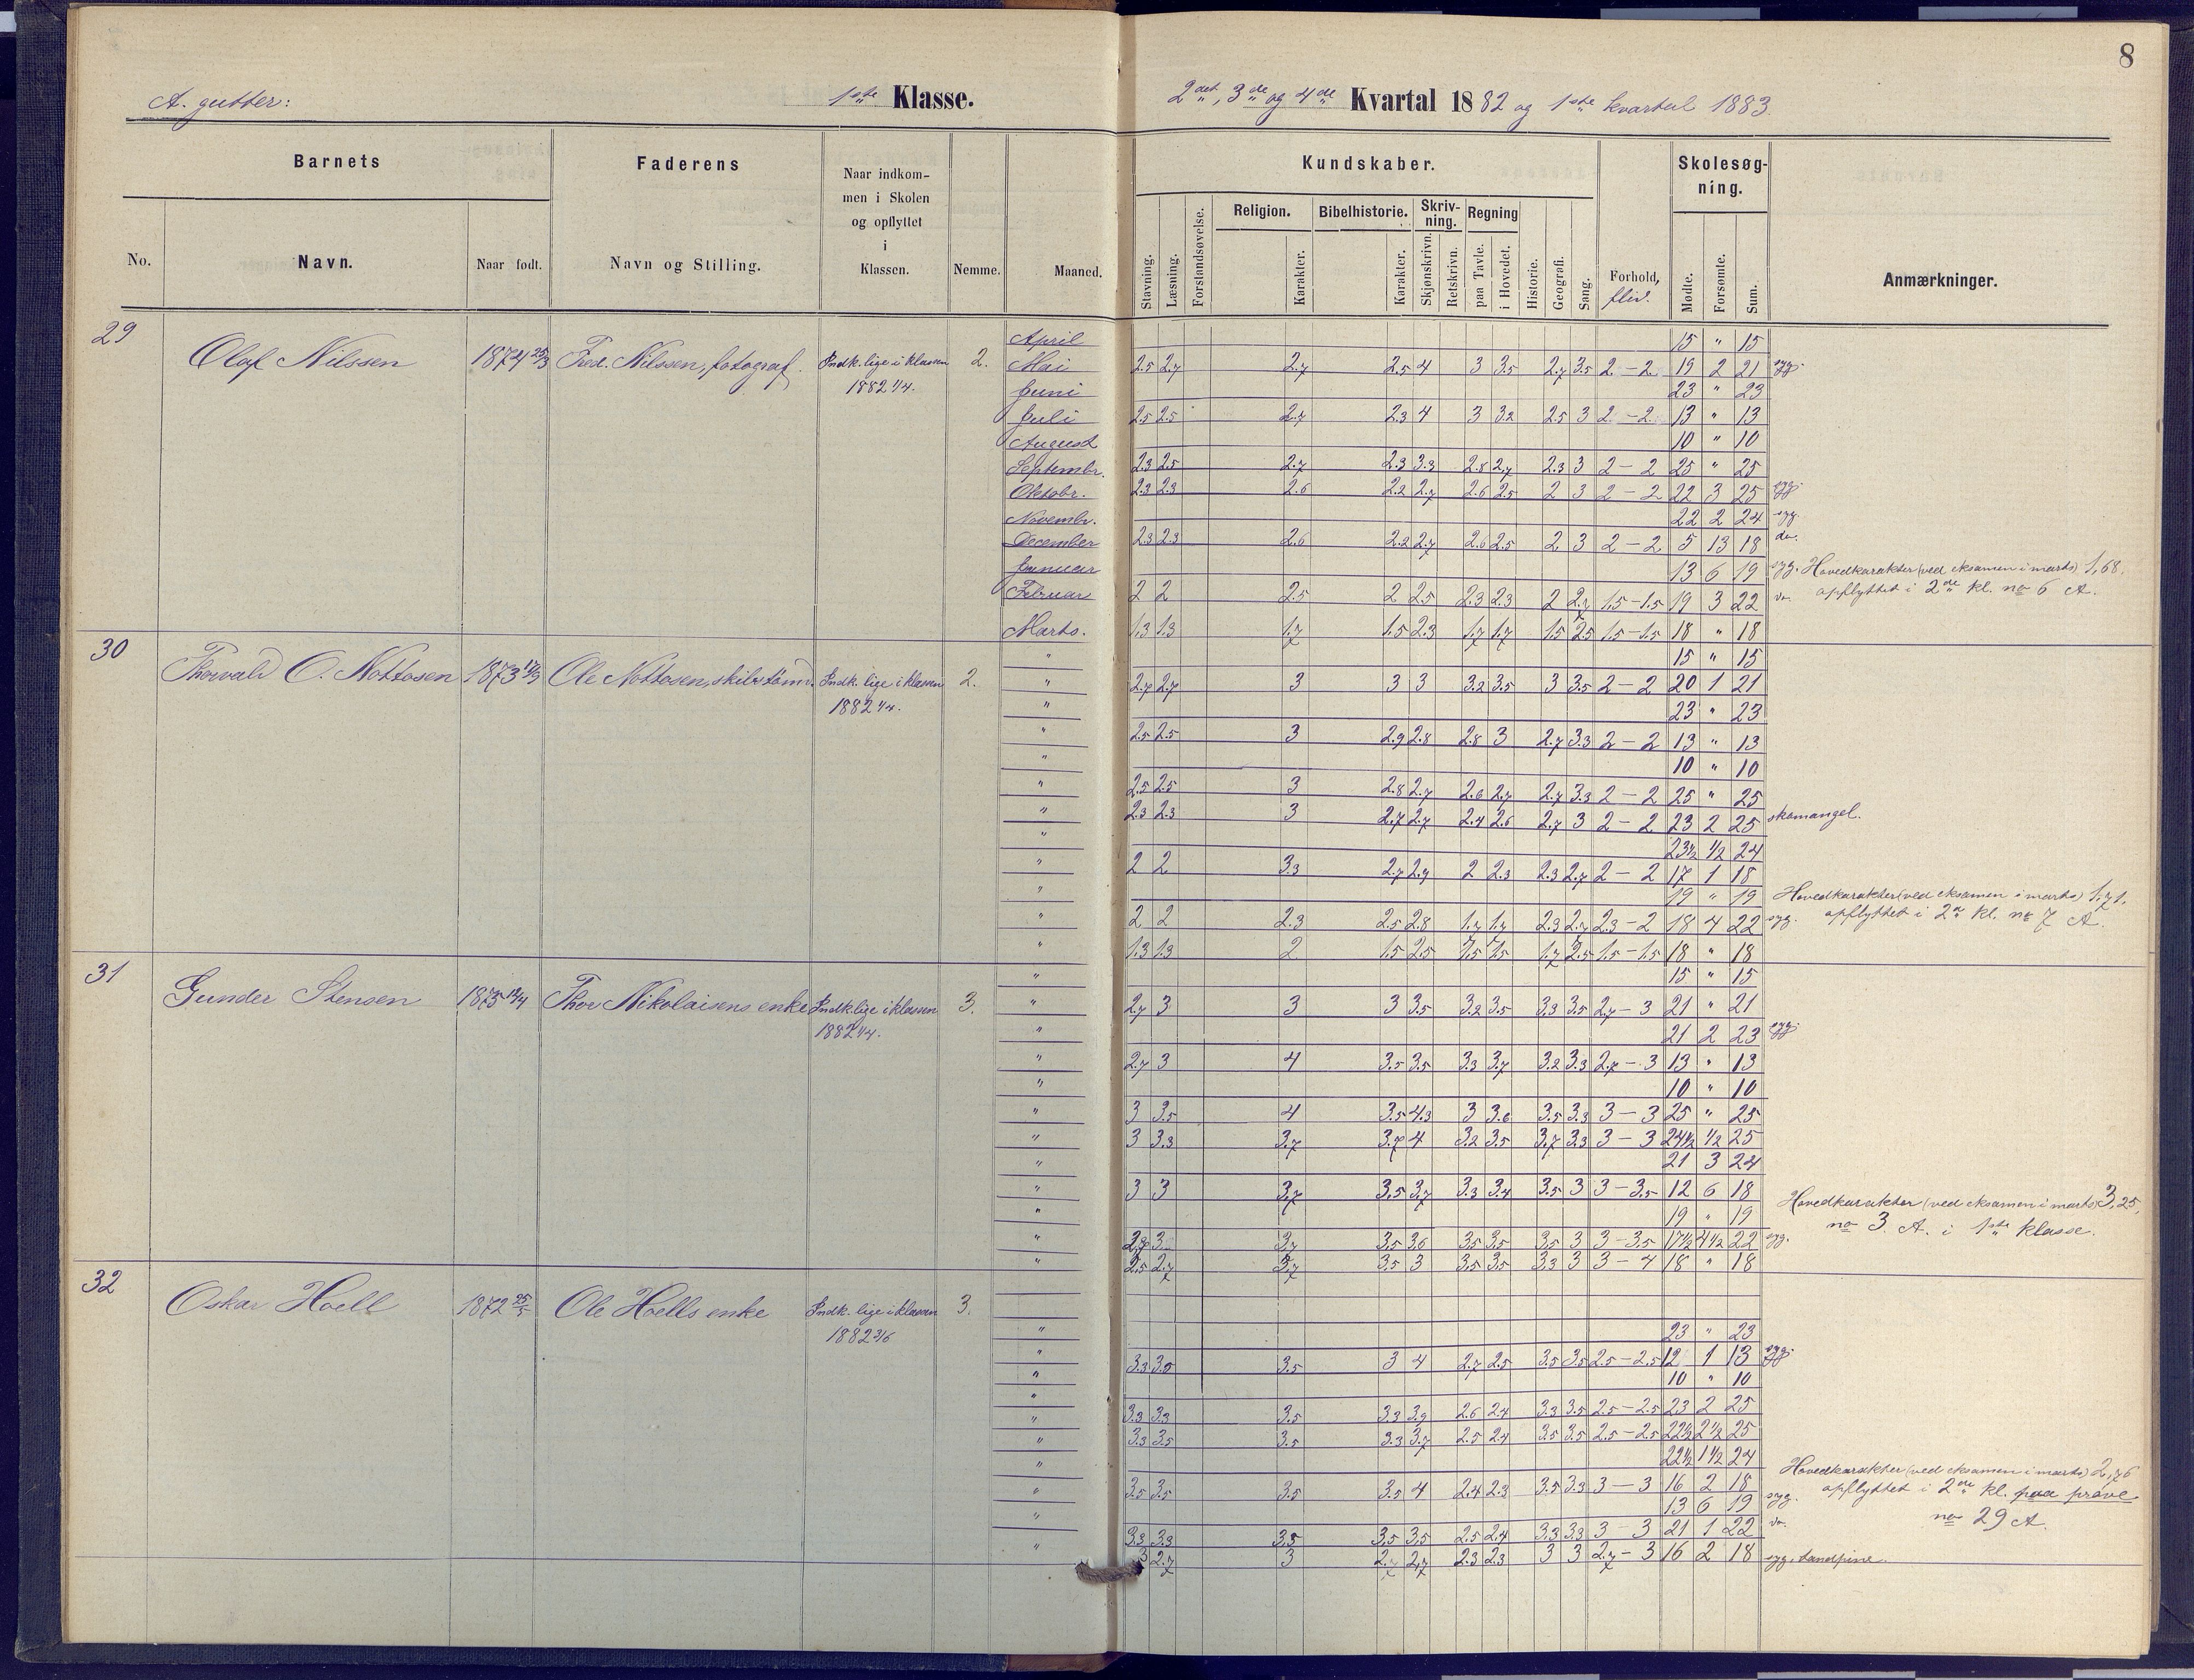 8
A. gutter: 1ste Klasse. 2det, 3de og 4de Kvartal 1882 og 1ste kvartal 1883.
Barnets Faderens Naar indkom-
men i Skolen
og opflyttet
i
Klassen. Nemme. Maaned.
No. Navn. Naar født. Navn og Stilling.
Kundskaber. Skolesøg-
ning.
Religion. Bibelhistorie. Skriv-
ning. Regning
Stavning. Læsning. Forstandsøvelse. Karakter. Karakter. Skjønskrivn. Retskrivn. paa Tavle. i Hovedet. Historie. Geografi. Sang. Forhold,
fliv. Mødte. Forsømte. Sum. Anmærkninger.
29 Olaf Nilssen 1874 25/3 Fred. Nilssen, fotograf. Indk. lige i klassen 2.
1882 1/4.
April 15 " 15
Mai 2.5 2.7 2.7 2.5 4 3 3.5 2.7 3.5 2 - 2 19 2 21 syg.
Juni 23 " 23
Juli 2.5 2.5 2.7 2.3 4 3 3.2 2.5 3 2 - 2 13 " 13
August 10 " 10
Septembr. 2.3 2.5 2.7 2.3 3.3 2.8 2.7 2.3 3 2 - 2 25 " 25
Oktobr. 2.3 2.3 2.6 2.2 2.7 2.6 2.5 2 3 2 - 2 22 3 25 syg.
Novembr. 22 2 24 syg.
December 2.3 2.3 2.6 2.2 2.7 2.6 2.5 2 3 2 - 2 5 13 18 do.
Januar 13 6 19 syg. Hovedkarakter (ved eksamen i marts) 1,68.
Februar 2 2 2.5 2 2.5 2.3 2.3 2 2.7 1.5 - 1.5 19 3 22 do. opflyttet i 2de kl. no 6 A.
Marts. 1.3 1.3 1.7 1.5 2.3 1.7 1.7 1.5 2.5 1.5 - 1.5 18 " 18
30 Thorvald O. Nottosen 1873 Ole Nottosen, Indk. lige i klassen 2.
1882 1/4.
" 15 " 15
" 2.7 2.7 3 3 3 3.2 3.5 3 3.5 2 - 2 20 1 21
" 23 " 23
" 2.5 2.5 3 2.9 2.8 2.8 3 2.7 3.3 2 - 2 13 " 13
" 10 " 10
" 2.5 2.5 3 2.8 2.7 2.6 2.7 2.7 3.3 2 - 2 25 " 25
" 2.3 2.3 3 2.7 2.7 2.4 2.6 2.7 3 2 - 2 23 2 25 skomangel.
" 23 1/2 1/2 24
" 2 2 3.3 2.7 2.9 2 2.3 2.3 2.7 2 - 2 17 1 18
" 19 " 19 Hovedkarakter (ved eksamen i marts) 1,71.
" 2 2 2.3 2.5 2.8 1.7 1.7 2.3 2.7 2.3 - 2 18 4 22 syg. opflyttet i 2de kl. no 7 A.
" 1.3 1.3 2 1.5 2.5 1.5 1.5 1.7 2.5 1.5 - 1.5 18 " 18
31 Gunder Stensen 1873 Thor Nikolaisens enke Indk. lige i klassen 3.
1882 1/4.
" 15 " 15
" 2.7 3 3 3 3.5 3.2 3.5 3.3 3.5 2.7 - 3 21 " 21
" 21 2 23 syg.
" 2.7 3 4 3.5 3.5 3.3 3.7 3.2 3.3 2.7 - 3 13 " 13
" 10 " 10
" 3 3.5 4 3.5 4.3 3 3.6 3.5 3.3 3 - 3 25 " 25
" 3 3.3 3.7 3.7 4 3.2 3.5 3.7 3.3 3 - 3 24 1/2 1/2 25
" 21 3 24
" 3 3 3.7 3.5 3.7 3.3 3.4 3.5 3 3 - 3.5 12 6 18 Hovedkarakter (ved eksamen i marts) 3,25,
" 19 " 19 no 3 A. i 1ste klasse.
" 2.8 3 3.7 3.5 3.6 3.5 3.5 3.5 3 3 - 3.5 17 1/2 4 1/2 22 syg.
" 2.5 2.7 3.7 3.5 3 3.5 3.5 3.3 3 3 - 4 18 " 18
32 Oskar Hoell 1872 25/5 Ole Hoells enke Indk. lige i klassen 3.
1882 3/6
" 23 " 23
" 3.3 3.5 3.5 3 4 2.7 2.5 3.5 3.5 2.5 - 2.5 12 1 13 syg.
" 10 " 10
" 3.3 3.3 3.5 3.3 3.9 2.6 2.4 3.3 3.5 2.5 - 2.5 23 2 25
" 3.3 3.5 3.5 3.3 3.7 2.5 2.4 3.5 3.5 2.5 - 2.5 22 1/2 2 1/2 25
" 22 1/2 1 1/2 24
" 3.5 3.5 3.5 3.5 4 2.4 2.3 3.5 3.3 3 - 3 16 2 18 Hovedkarakter (ved eksamen i marts) 2,76
" 13 6 19 syg. opflyttet i 2den kl. paa prøve
" 3.3 3.3 3.5 3.5 3.5 2.5 2.4 3.3 3.3 3 - 3 21 1 22 do. no 29 A.
" 3 2.7 3 2.7 2.7 2.3 2.3 3 3 2.7 - 3 16 2 18 syg. tandpine.